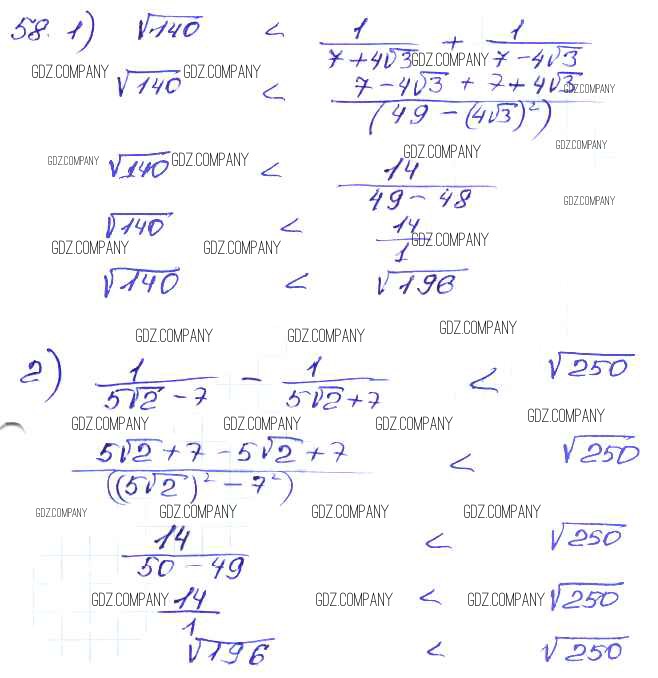 58. 1) √140 < 1/(7+4√3) + 1/(7-4√3)
GDZ.COMPANY GDZ.COMPANY GDZ.COMPANY
√140 < (7-4√3 + 7+4√3)/(49-(4√3)²)
GDZ.COMPANY
GDZ.COMPANY GDZ.COMPANY GDZ.COMPANY GDZ.COMPANY
√140 < 14/(49-48)
GDZ.COMPANY
√140 < 14/1
GDZ.COMPANY GDZ.COMPANY GDZ.COMPANY
√140 < √196
GDZ.COMPANY GDZ.COMPANY GDZ.COMPANY
2) 1/(5√2-7) - 1/(5√2+7) < √250
GDZ.COMPANY GDZ.COMPANY GDZ.COMPANY GDZ.COMPANY
(5√2+7-5√2+7)/((5√2)²-7²) < √250
GDZ.COMPANY GDZ.COMPANY GDZ.COMPANY GDZ.COMPANY
14/(50-49) < √250
GDZ.COMPANY GDZ.COMPANY GDZ.COMPANY
14/1 < √250
√196 < √250